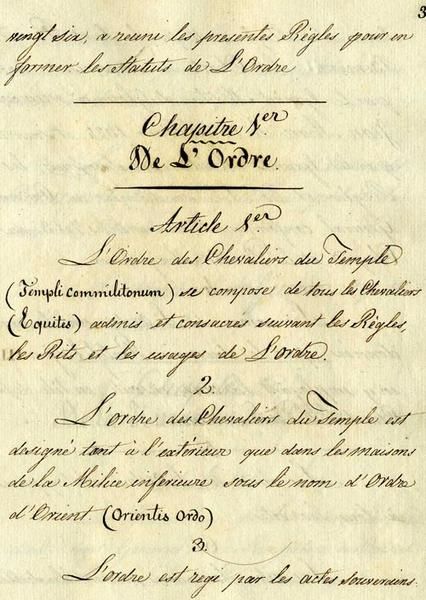 3
vingt six, a reuni les presentes Règles pour en
former les Statuts de L'Ordre
Chapitre 1.er
De L'Ordre.
Article 1.er
L'Ordre des Chevaliers du Temple
(Templi commilitonum) se compose de tous les Chevaliers
(Equites) admis et consacrés suivant les Règles,
les Rits et les usages de L'ordre.
2.
L'ordre des Chevaliers du Temple est
designé tant à l'extérieur que dans les maisons
de la Milice inferieure sous le nom d'Ordre
d'Orient. (Orientis Ordo)
3.
L'ordre est regi par les actes souverains